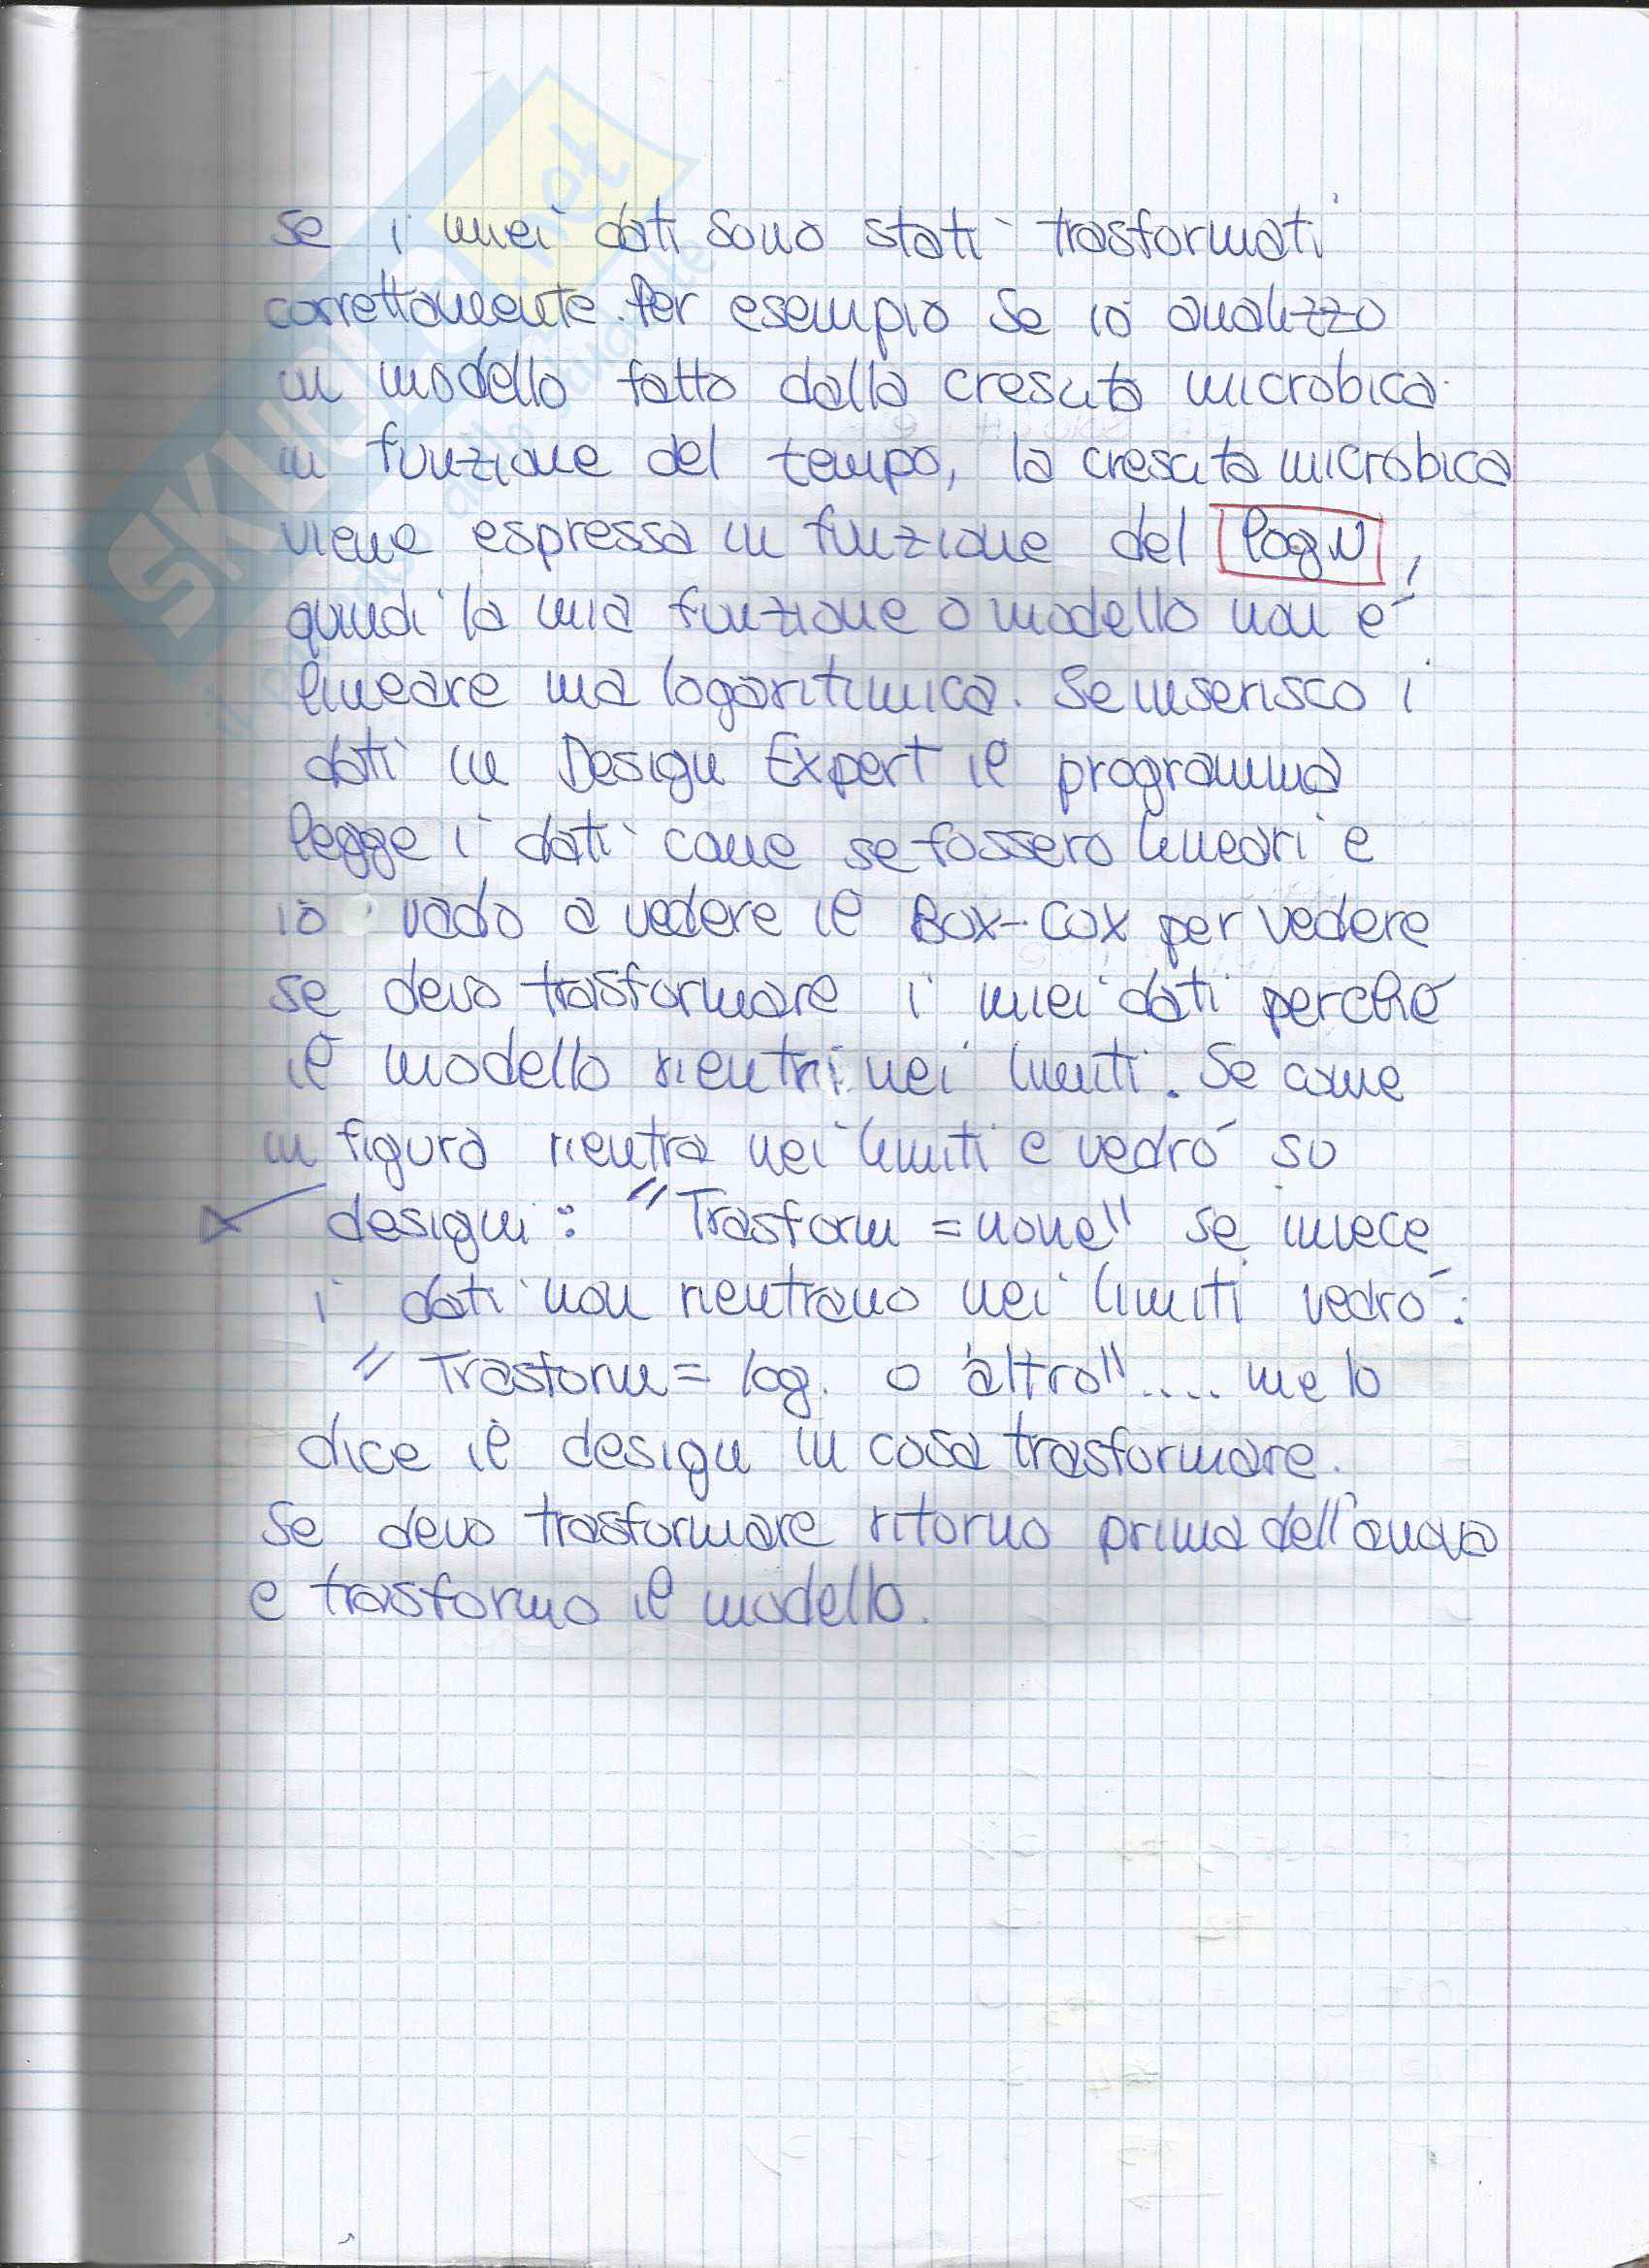 se i miei dati sono stati trasformati
correttamente. Per esempio se io analizzo
un modello fatto dalla crescita microbica
in funzione del tempo, la crescita microbica
viene espressa in funzione del log N,
quindi la mia funzione o modello non é
lineare ma logaritimica. Se inserisco i
dati in Design Expert il programma
legge i dati come se fossero lineari e
io vado a vedere il Box-Cox per vedere
se devo trasformare i miei dati perché
il modello rientri nei limiti. Se come
in figura rientra nei limiti e vedró su
design: "Trasform = none" se invece
i dati non rientrano nei limiti vedró:
"Trasform = log. o altro".... me lo
dice il design in cosa trasformare.
Se devo trasformare ritorno prima dell'anova
e trasformo il modello.
SKUOLA.net